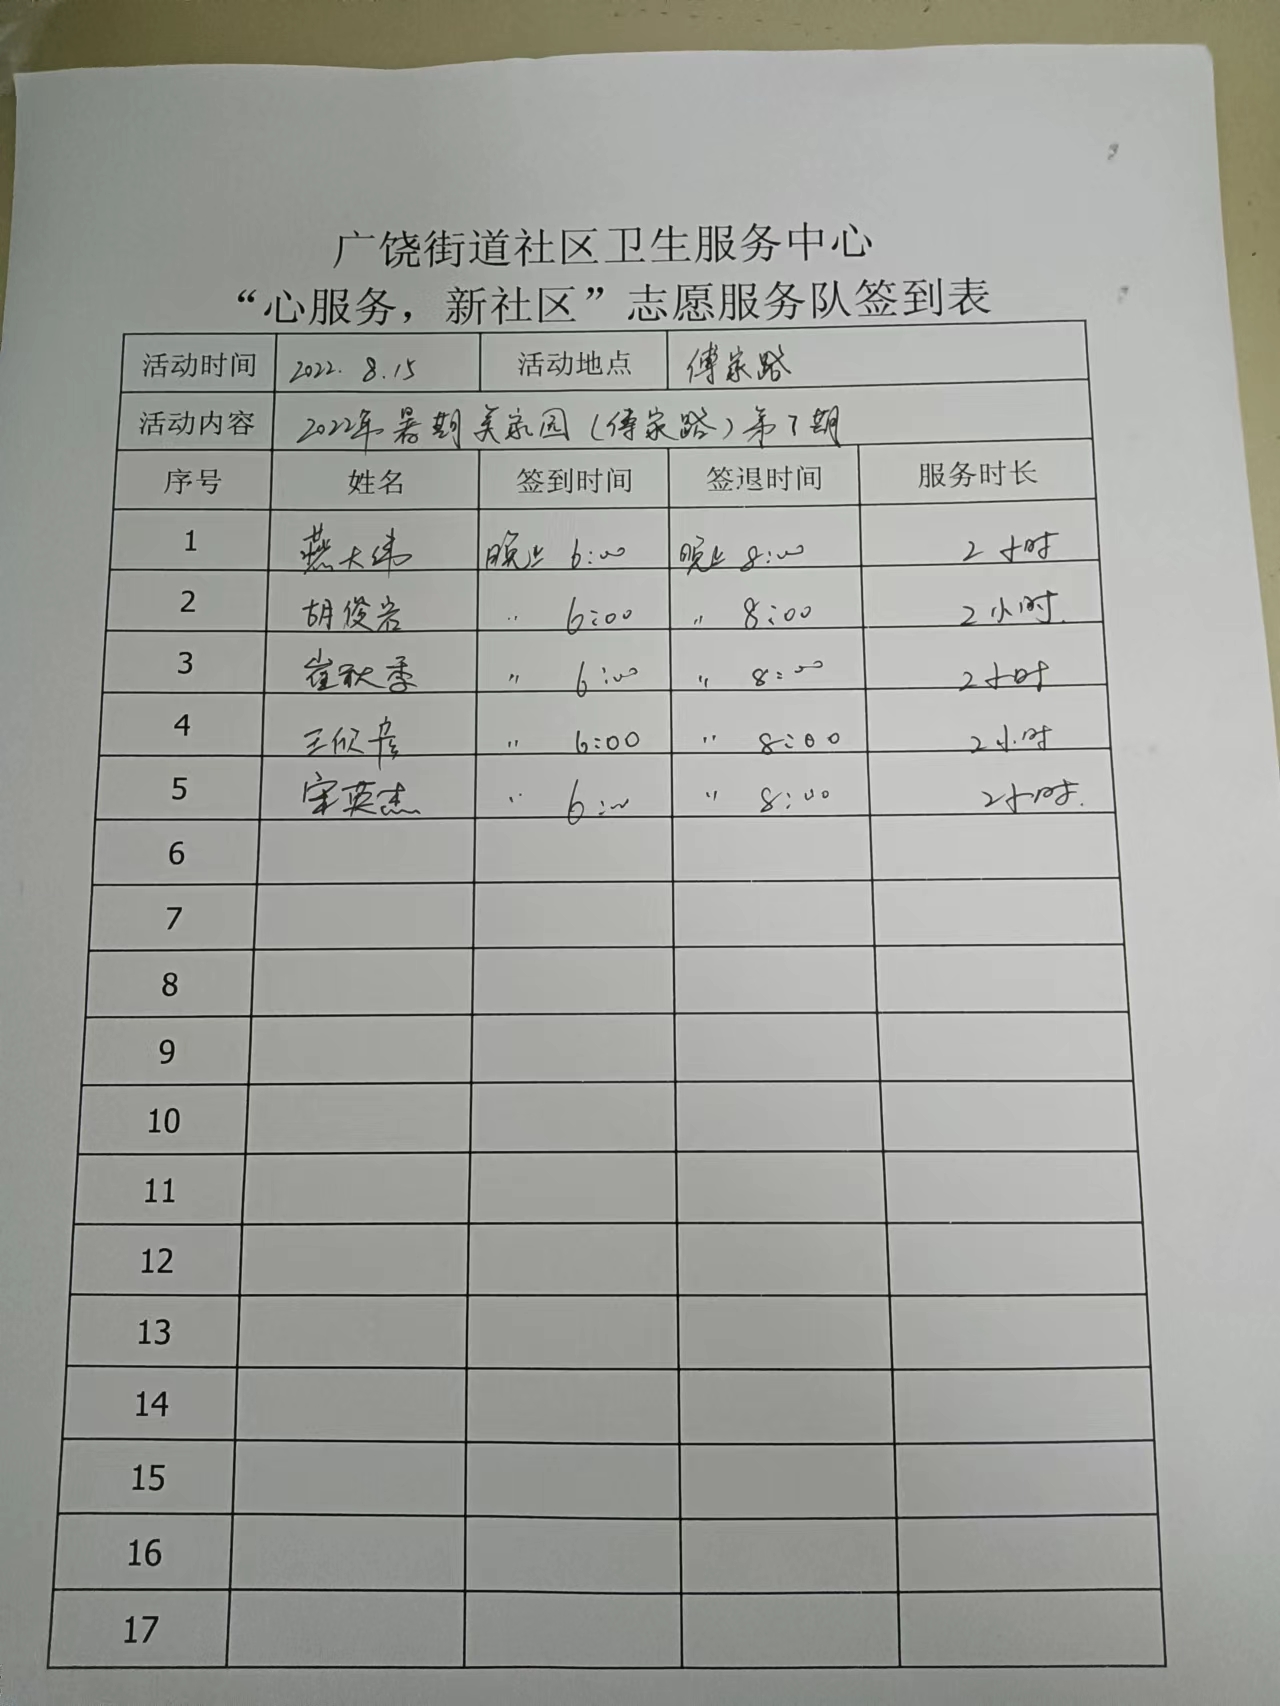 广饶街道社区卫生服务中心
“心服务，新社区”志愿服务队签到表
活动时间 2022.8.15 活动地点 傅家路
活动内容 2022年暑期美家园（傅家路）第7期
序号 姓名 签到时间 签退时间 服务时长
1 燕大伟 晚上 6:00 晚上 8:00 2小时
2 胡俊岩 〃 6:00 〃 8:00 2小时.
3 崔秋季 〃 6:00 〃 8:00 2小时
4 王欣彦 〃 6:00 〃 8:00 2小时
5 宋英杰 〃 6:00 〃 8:00 2小时.
6
7
8
9
10
11
12
13
14
15
16
17